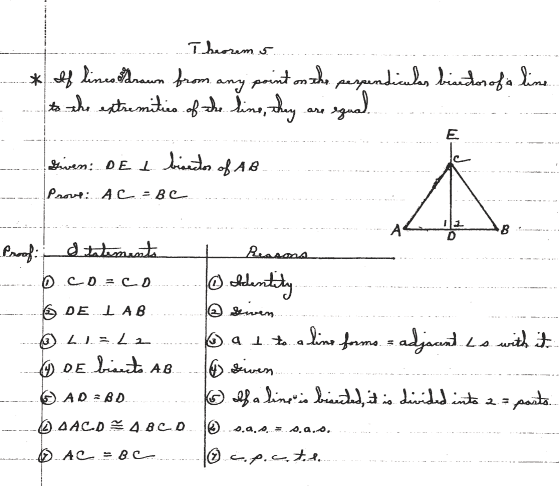 Theorem 5
* If lines drawn from any point on the perpendicular bisector of a line
to the extremities of the line, they are equal.
E
C
Given: DE ⊥ bisector of AB
Prove: AC = BC
A 1 2 B
D
Proof: Statements Reasons
① CD = CD ① Identity
② DE ⊥ AB ② Given
③ ∠1 = ∠2 ③ a ⊥ to a line forms = adjacent ∠s with it.
④ DE bisects AB ④ Given
⑤ AD = BD ⑤ If a line is bisected, it is divided into 2 = parts.
⑥ △ACD ≅ △BCD ⑥ s.a.s. = s.a.s.
⑦ AC = BC ⑦ c.p.c.t.e.